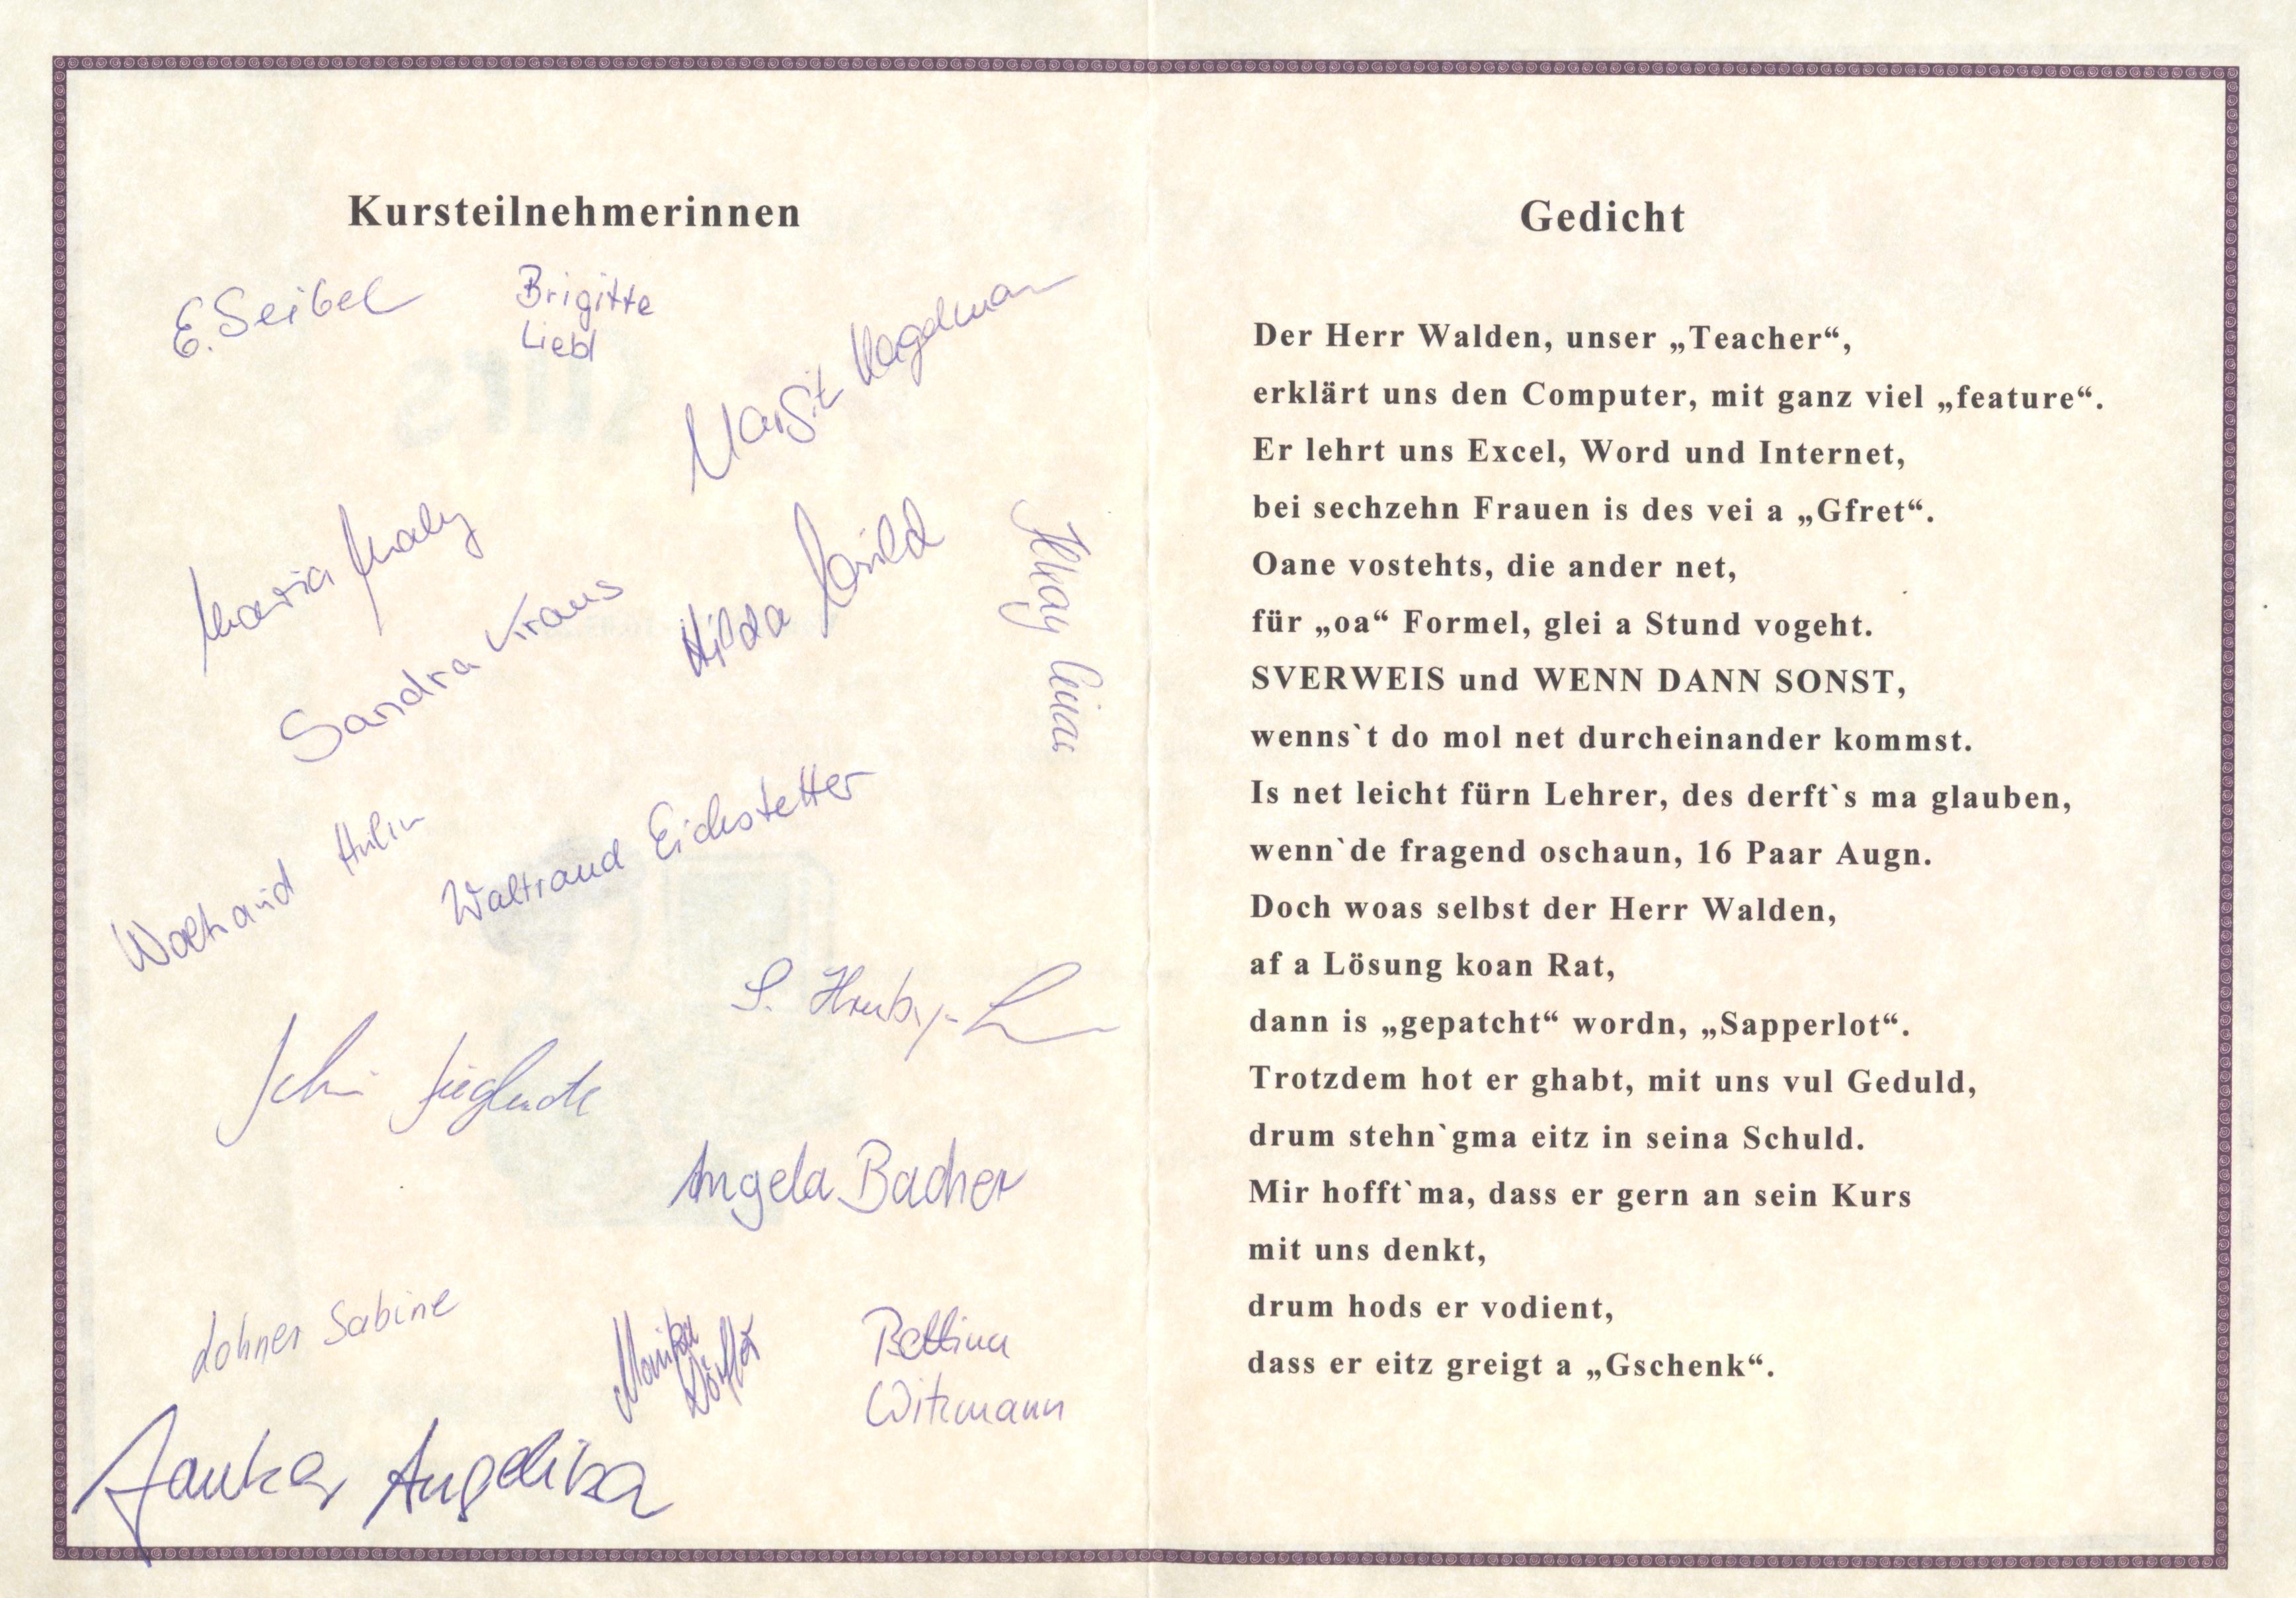 Kursteilnehmerinnen
E. Seibel
Brigitte
Liebl
Margit
Maria
Sandra Kraus
Hilda
Waltraud Eichstetter
S.
Angela Bacher
Lohner Sabine
Bettina
Witzmann
Angelika
Gedicht
Der Herr Walden, unser „Teacher“,
erklärt uns den Computer, mit ganz viel „feature“.
Er lehrt uns Excel, Word und Internet,
bei sechzehn Frauen is des vei a „Gfret“.
Oane vostehts, die ander net,
für „oa“ Formel, glei a Stund vogeht.
SVERWEIS und WENN DANN SONST,
wenns`t do mol net durcheinander kommst.
Is net leicht fürn Lehrer, des derft`s ma glauben,
wenn`de fragend oschaun, 16 Paar Augn.
Doch woas selbst der Herr Walden,
af a Lösung koan Rat,
dann is „gepatcht“ wordn, „Sapperlot“.
Trotzdem hot er ghabt, mit uns vul Geduld,
drum stehn`gma eitz in seina Schuld.
Mir hofft`ma, dass er gern an sein Kurs
mit uns denkt,
drum hods er vodient,
dass er eitz greigt a „Gschenk“.